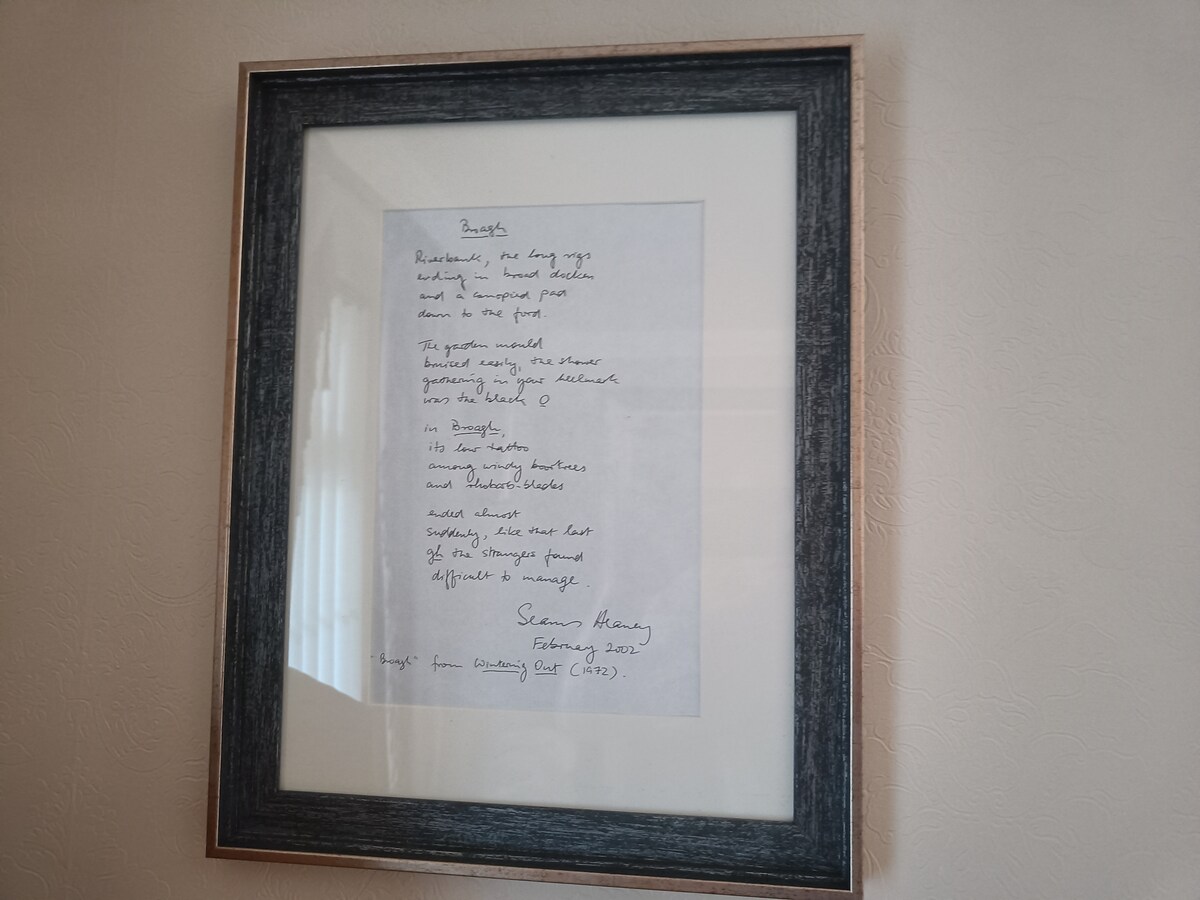 Broagh
Riverbank, the long rigs
ending in broad docken
and a canopied pad
down to the ford.
The garden mould
bruised easily, the shower
gathering in your heelmark
was the black O
in Broagh,
its low tattoo
among windy boortrees
and rhubarb-blades
ended almost
suddenly, like that last
gh the strangers found
difficult to manage.
Seamus Heaney
February 2002
"Broagh" from Wintering Out (1972).